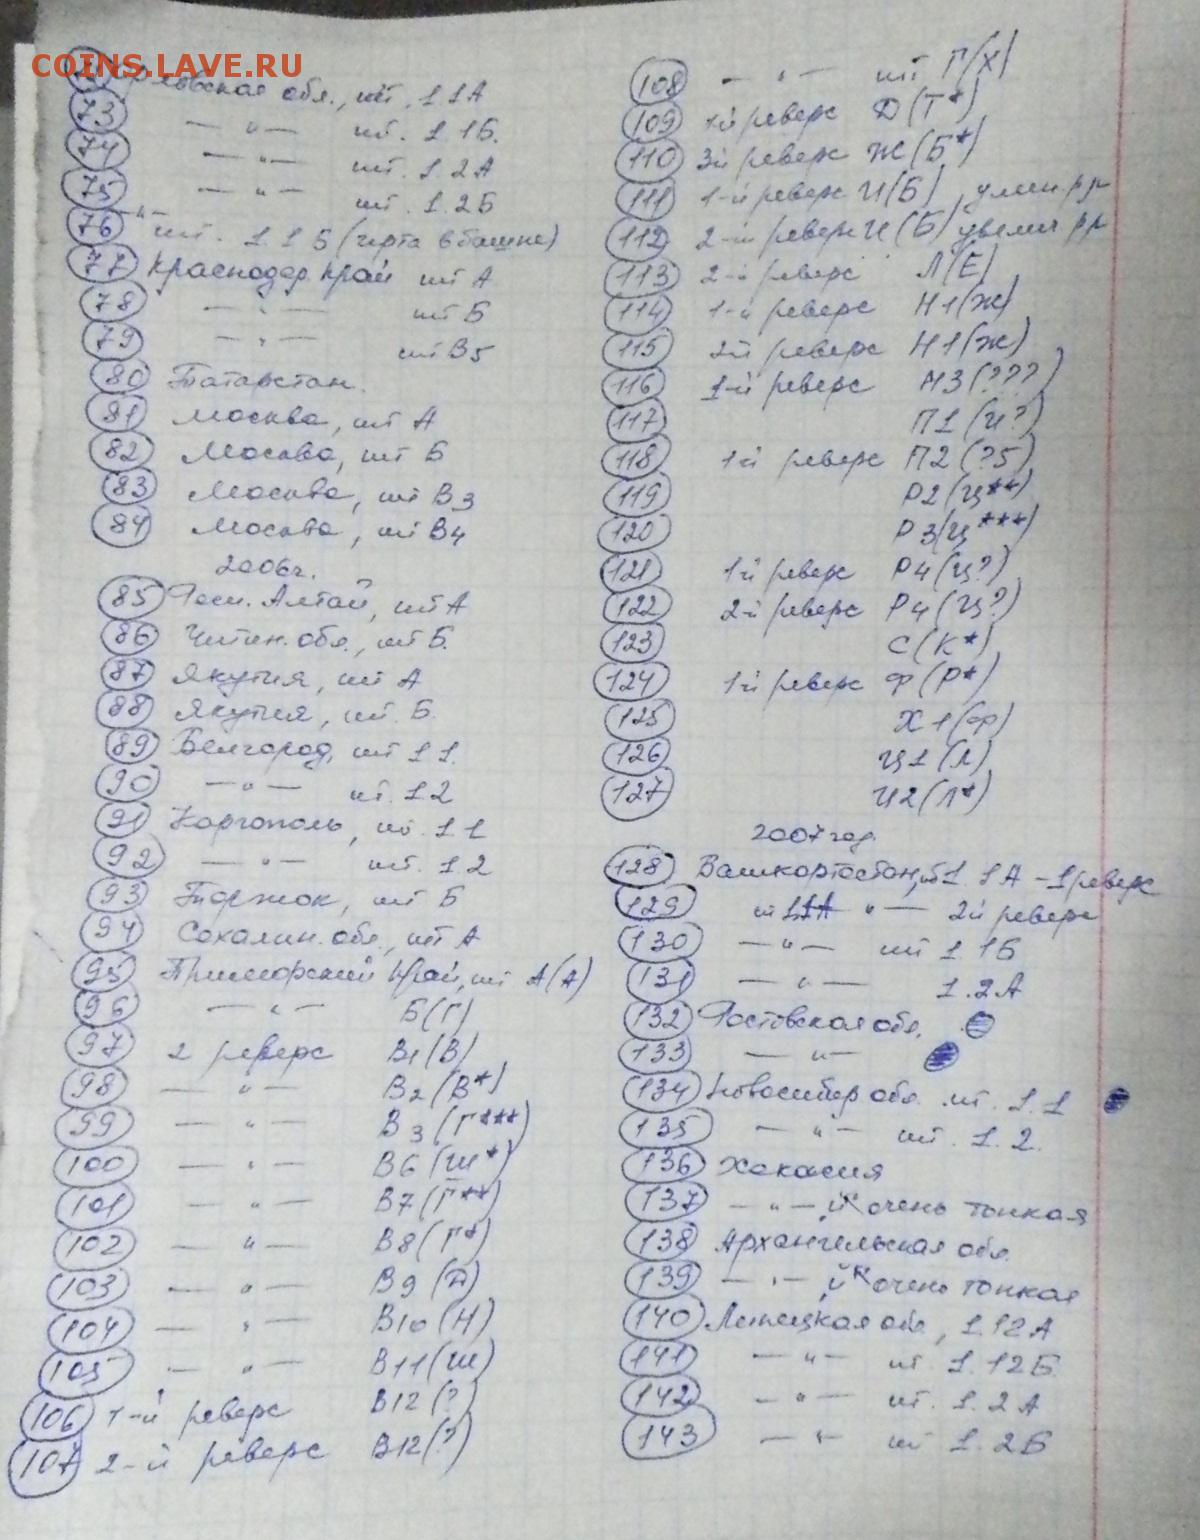 COINS.LAVE.RU
Орловская обл., шт. 1.1А
73 —"— шт. 1.1Б.
74 —"— шт. 1.2А
75 —"— шт. 1.2Б
76 —"— шт. 1.1Б (черта в башне)
77 Краснодар. край шт А
78 —"— шт Б
79 —"— шт В5
80 Татарстан.
81 Москва, шт А
82 Москва, шт Б
83 Москва, шт В3
84 Москва, шт В4
2006г.
85 Респ. Алтай, шт А
86 Читин. обл., шт Б.
87 Якутия, шт А
88 Якутия, шт. Б.
89 Белгород, шт 1.1.
90 —"— шт. 1.2
91 Каргополь, шт. 1.1
92 —"— шт. 1.2
93 Торжок, шт Б
94 Сахалин. обл., шт А
95 Приморский край, шт А(А)
96 —"— Б(Г)
97 2 реверс В1(В)
98 —"— В2(В*)
99 —"— В3(Г***)
100 —"— В6(Ш*)
101 —"— В7(Г**)
102 —"— В8(Г*)
103 —"—
104 —"— В10(Н)
105 —"— В11(Ш)
106 1-й реверс В12(?)
107 2-й реверс В12(?)
108 —"— шт Г(Х)
109 1й реверс Д(Т*)
110 3й реверс Ж(Б*)
111 1-й реверс И(Б)
112 2-й реверс И(Б) увелич
113 2-й реверс Л(Е)
114 1-й реверс Н1(Ж)
115 2й реверс Н1(Ж)
116 1-й реверс Н3(???)
117 П1(И?)
118 1й реверс П2(?5)
119 Р2(Ц**)
120 Р3(Ц***)
121 1й реверс Р4(Ц?)
122 2-й реверс Р4(Ц?)
123 С(К*)
124 1й реверс Ф(Р*)
125 Х1(Ф)
126 Ц1(Л)
127 Ц2(Л*)
2007 год.
128 Башкортостан, шт 1.1А - 1 реверс
129 шт 1.1А —"— 2й реверс
130 —"— шт 1.1Б
131 —"— 1.2А
132 Ростовская обл.
133 —"—
134 Новосибир обл. шт. 1.1
135 —"— шт. 1.2.
136 Хакасия
137 —"— "й" очень тонкая
138 Архангельская обл.
139 —"— "й" очень тонкая
140 Липецкая обл, 1.12А
141 —"— шт. 1.12Б
142 —"— шт. 1.2А
143 —"— шт 1.2Б